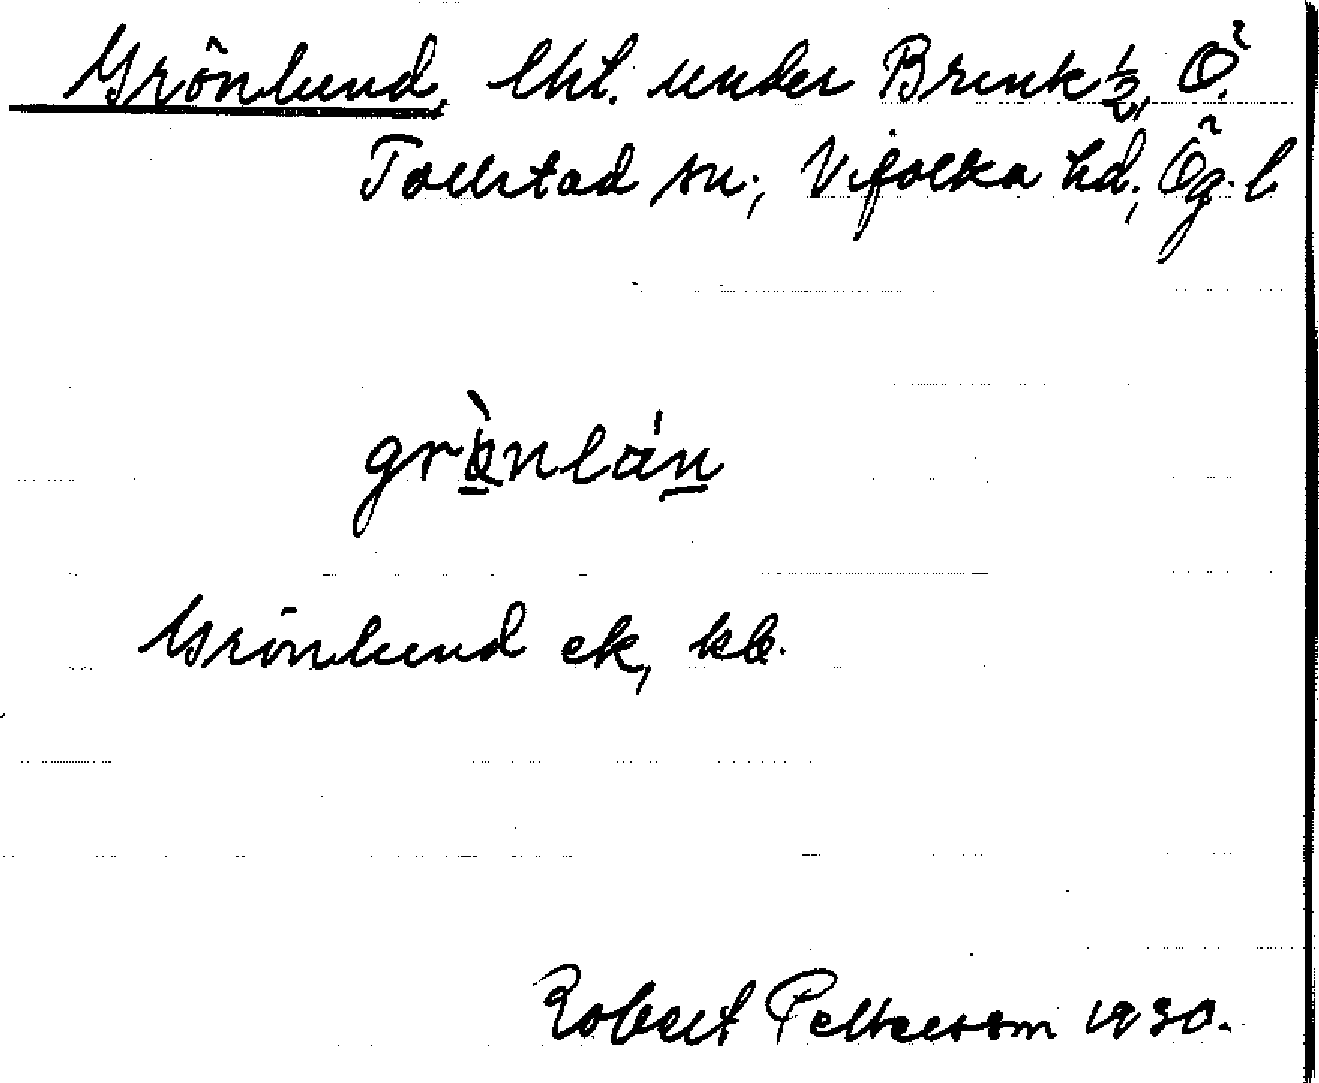 Grönlund, lht. under Brink ½, Ö.
Tollstad sn; Vifolka hd; Ög. l
grònlán
Grönlund ek, kb.
Robert Petterson 1930.